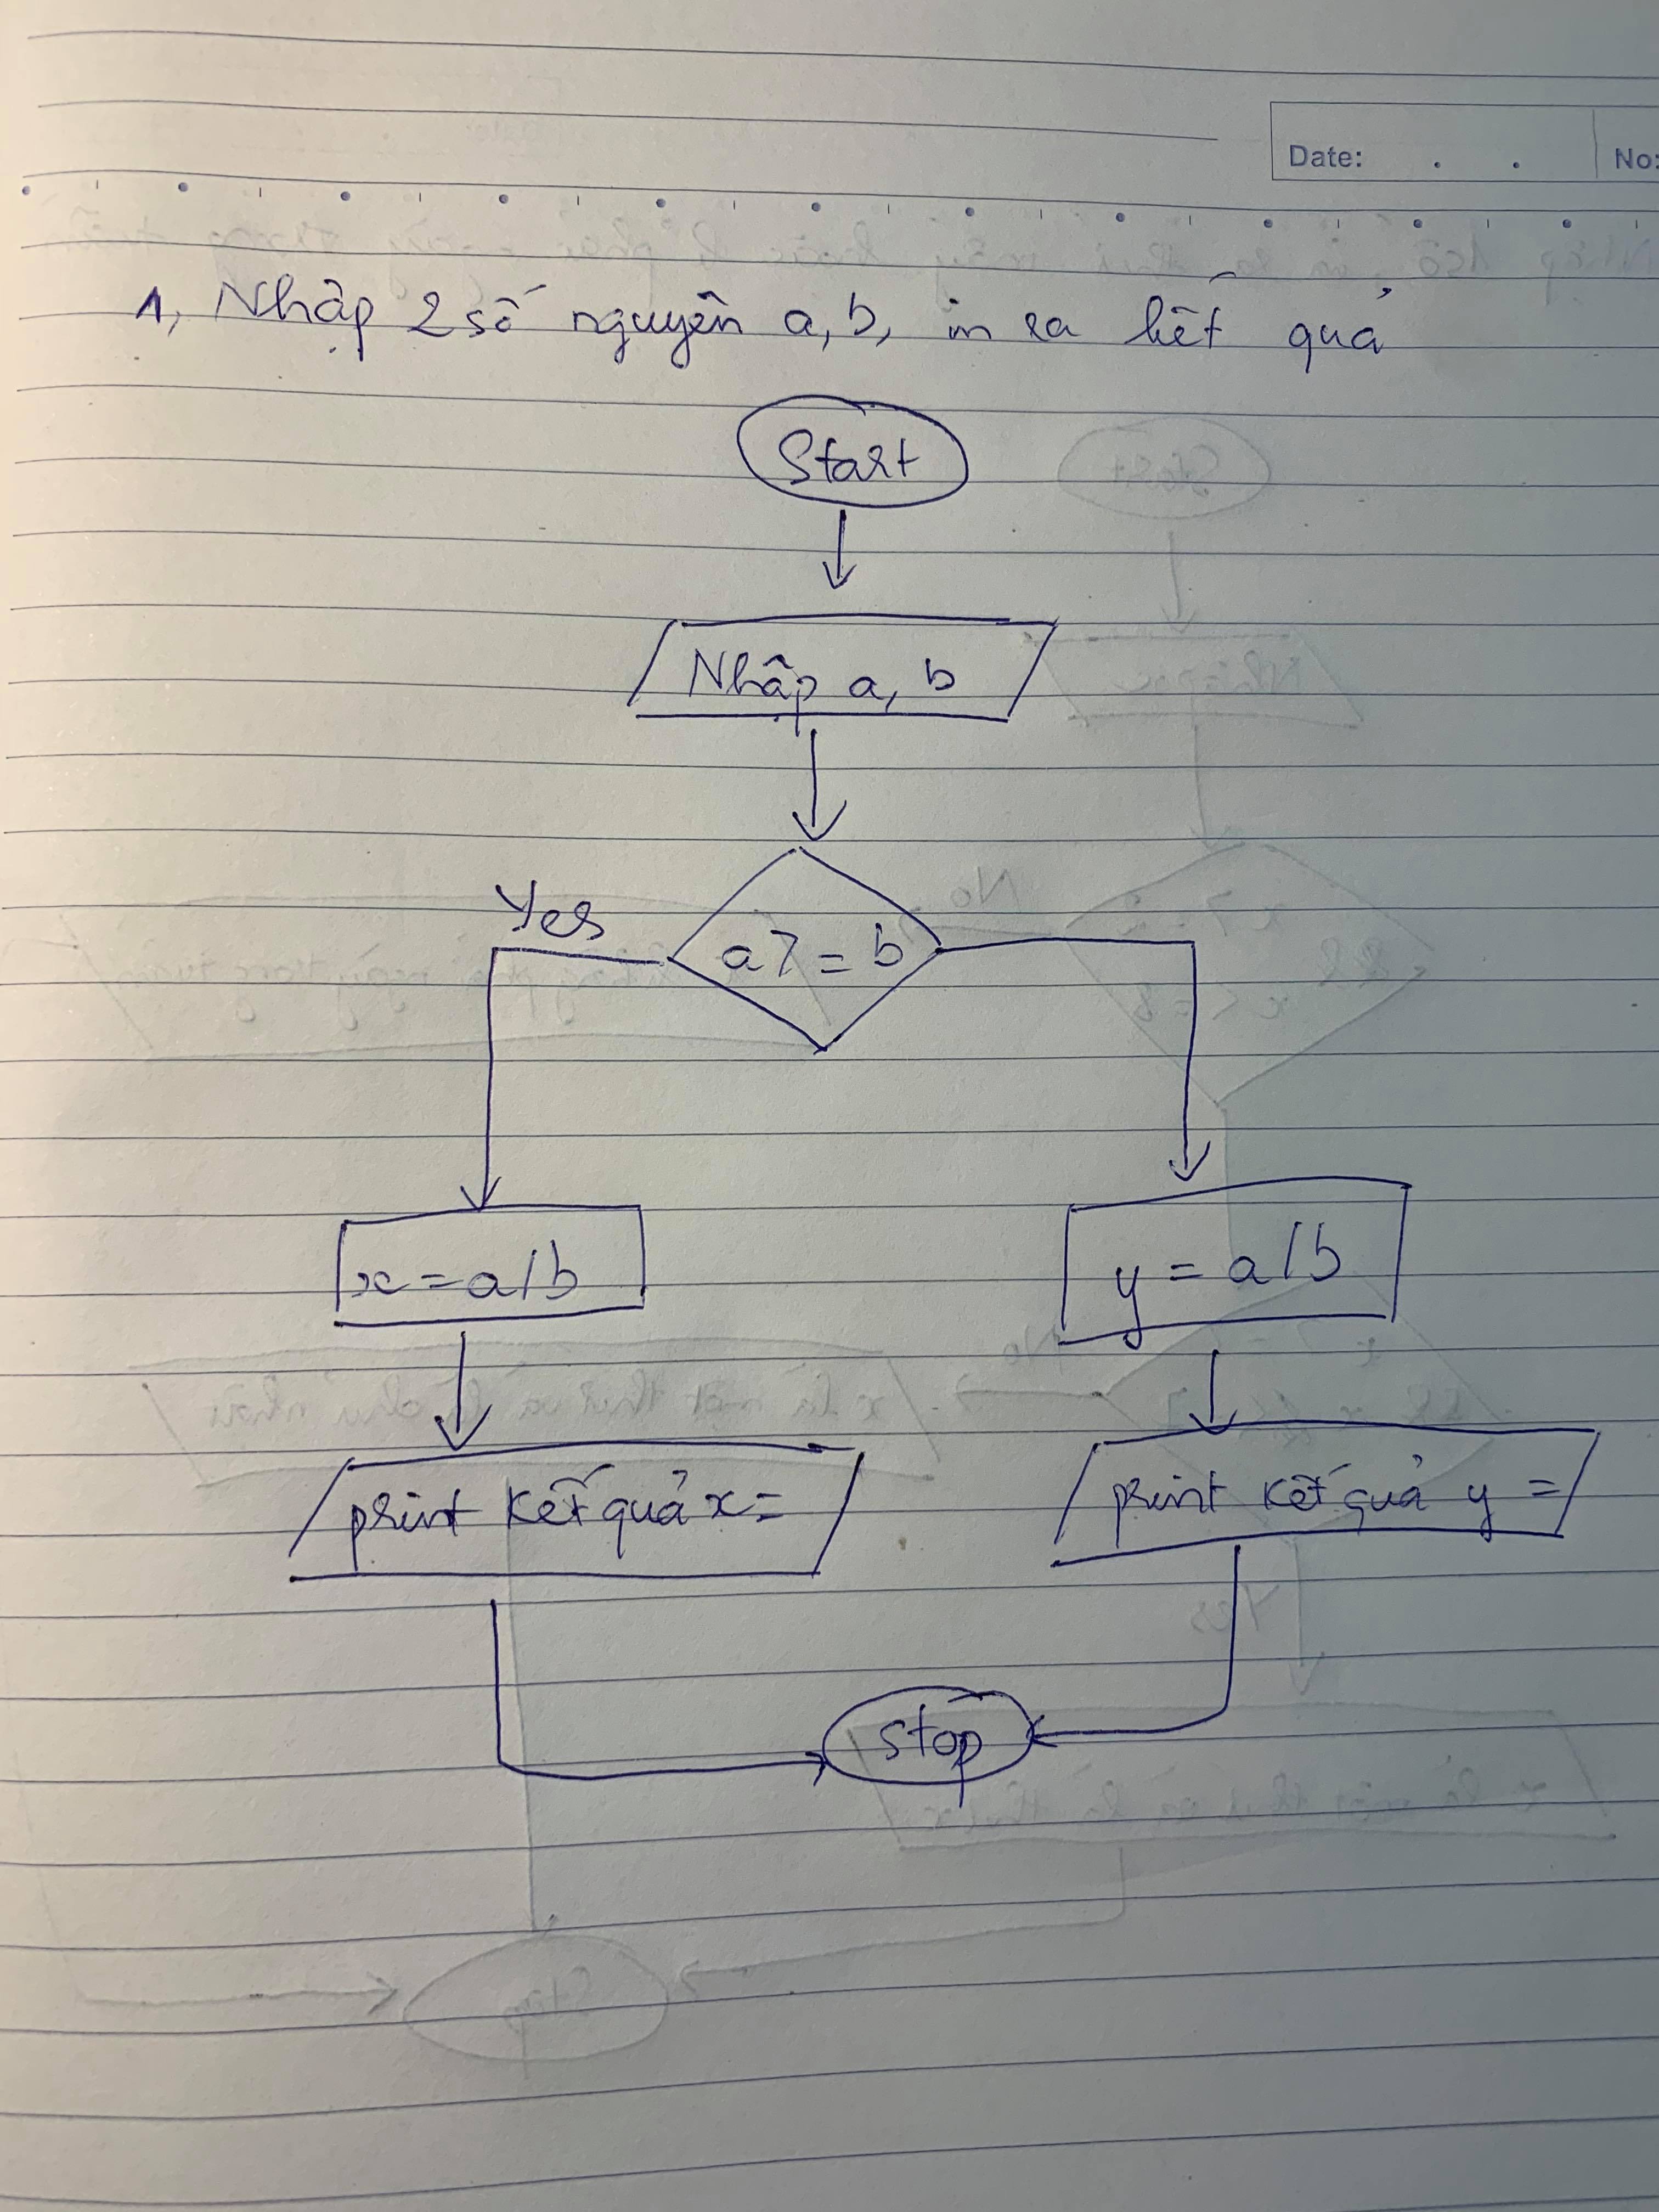 Date: . . No:
1, Nhập 2 số nguyên a, b, in ra kết quả
Start
Nhập a, b
Yes
a>=b
x=a/b
y=a/b
print kết quả x=
print kết quả y=
Stop